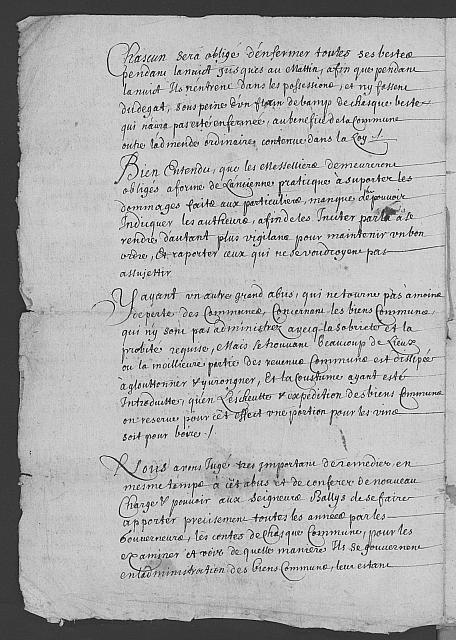 Chascun sera obligé d'enfermer toutes ses bestes
pendant la nuict jusques au Mattin, afin que pendant
la nuict Ils n'entrent dans les possessions, et ny fassent
du degat, sous peine d'un florin de bamp de chasque beste
qui n'aura pas esté enfermée, au benefice de la Commune
outre l'admende ordinaire, contenue dans la Loy ./.
Bien Entendu, que les Messelliers demeureront
obligés a forme de l'ancienne practique à suporter les
dommages faits aux particuliers, manque de pouvoir
Indicquer les autheurs, afin de les Inciter par là à se
rendre d'autant plus vigilans pour maintenir un bon
ordre, Et raporter ceux qui ne se voudroyent pas
assujettir
Y ayant un autre grand abus, qui ne tourne pas à moins
de perte des Communes, Concernant les biens Communs
qui n'y sont pas administrez avecq la sobrieté et la
probité requise, Mais se trouvant beaucoup de Lieux
ou la meilleure partie des revenus Communs est dissipée
a glouttonner & yvrongner, Et la Coustume ayant esté
Introduitte, qu'en L'escheutte & expédition des biens Communs
on reserve pour cet effect une portion pour les vins
soit pour boire ./.
Nous avons Jugé tres important de remedier en
mesme temps à cet abus et de conferer de nouveau
Charge & pouvoir aux Seigneurs Ballys de se faire
apporter precisement toutes les années par les
Gouverneurs, les contes de chasque Commune, pour les
examiner et voir de quelle maniere Ils se gouvernent
en l'administration des biens Communs, leur estant